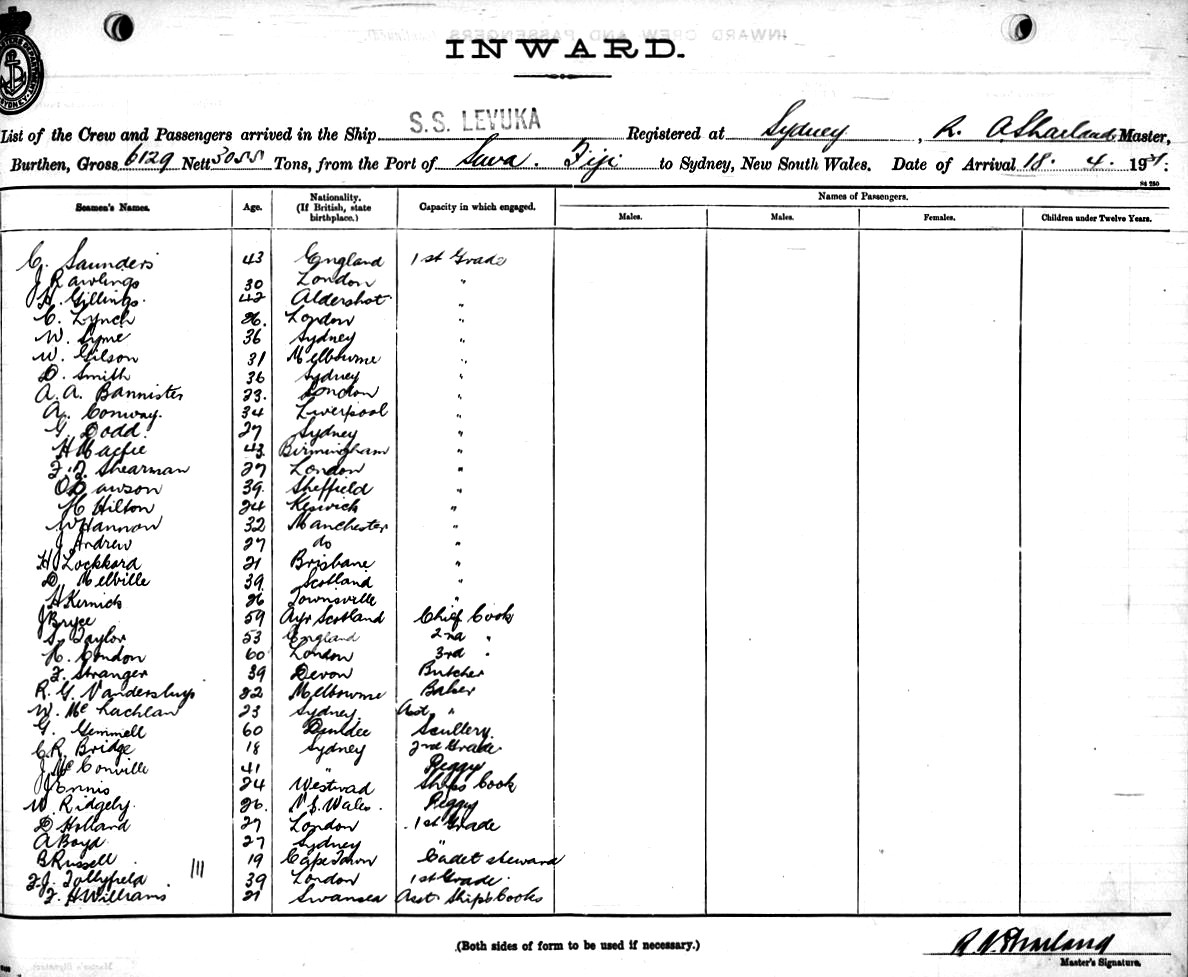 INWARD.
List of the Crew and Passengers arrived in the Ship S.S. LEVUKA Registered at Sydney, R. A Sharland Master,
Burthen, Gross 6129 Nett 3055 Tons, from the Port of Suva. Fiji to Sydney, New South Wales. Date of Arrival 18. 4. 1931.
St 250
Seamen's Names. Age. Nationality. (If British, state birthplace.) Capacity in which engaged. Names of Passengers.
Males. Males. Females. Children under Twelve Years.
C. Saunders 43 England 1st Grade
J Rawlings 30 London "
H. Gillings. 42 Aldershot "
C. Lynch 26. London "
W. Syme 36 Sydney "
W. Gilson 31 Melbourne "
D. Smith 36 Sydney "
A. A. Bannister 23. London "
A. Conway. 34 Liverpool "
G. Dodd. 27 Sydney "
H Macfie 43 Birmingham "
F. J. Shearman 27 London "
O Dawson 39. Sheffield "
H Hilton 24 Keswick "
W Hannon 32 Manchester "
J Andrew 27 do "
H Lockhard 21 Brisbane "
D. Melville 39. Scotland "
H Kernick 26 Townsville "
J Bryce 59 Ayr Scotland Chief Cook
S. Taylor 53 England 2nd "
R. Condon 60 London 3rd "
F. Stranger 39 Devon Butcher
R. G. Vandersluys 22 Melbourne Baker
W. McLachlan 23 Sydney Asst. "
G. Gemmell 60 Dundee Scullery.
C R. Bridge 18 Sydney 2nd Grade
J McConville 41 " Peggy
J Ennis 24 Ships Cook
W. Ridgely. 26. N. S. Wales. Peggy
D Holland 27 London 1st Grade
A Boyd 27 Sydney "
B Russell 19 Cape Town Cadet steward
F. J. Tollyfield 39 London 1st Grade
F. H. Williams 21 Swansea Asst Ship's Cooks
(Both sides of form to be used if necessary.)
R A Sharland
Master's Signature.